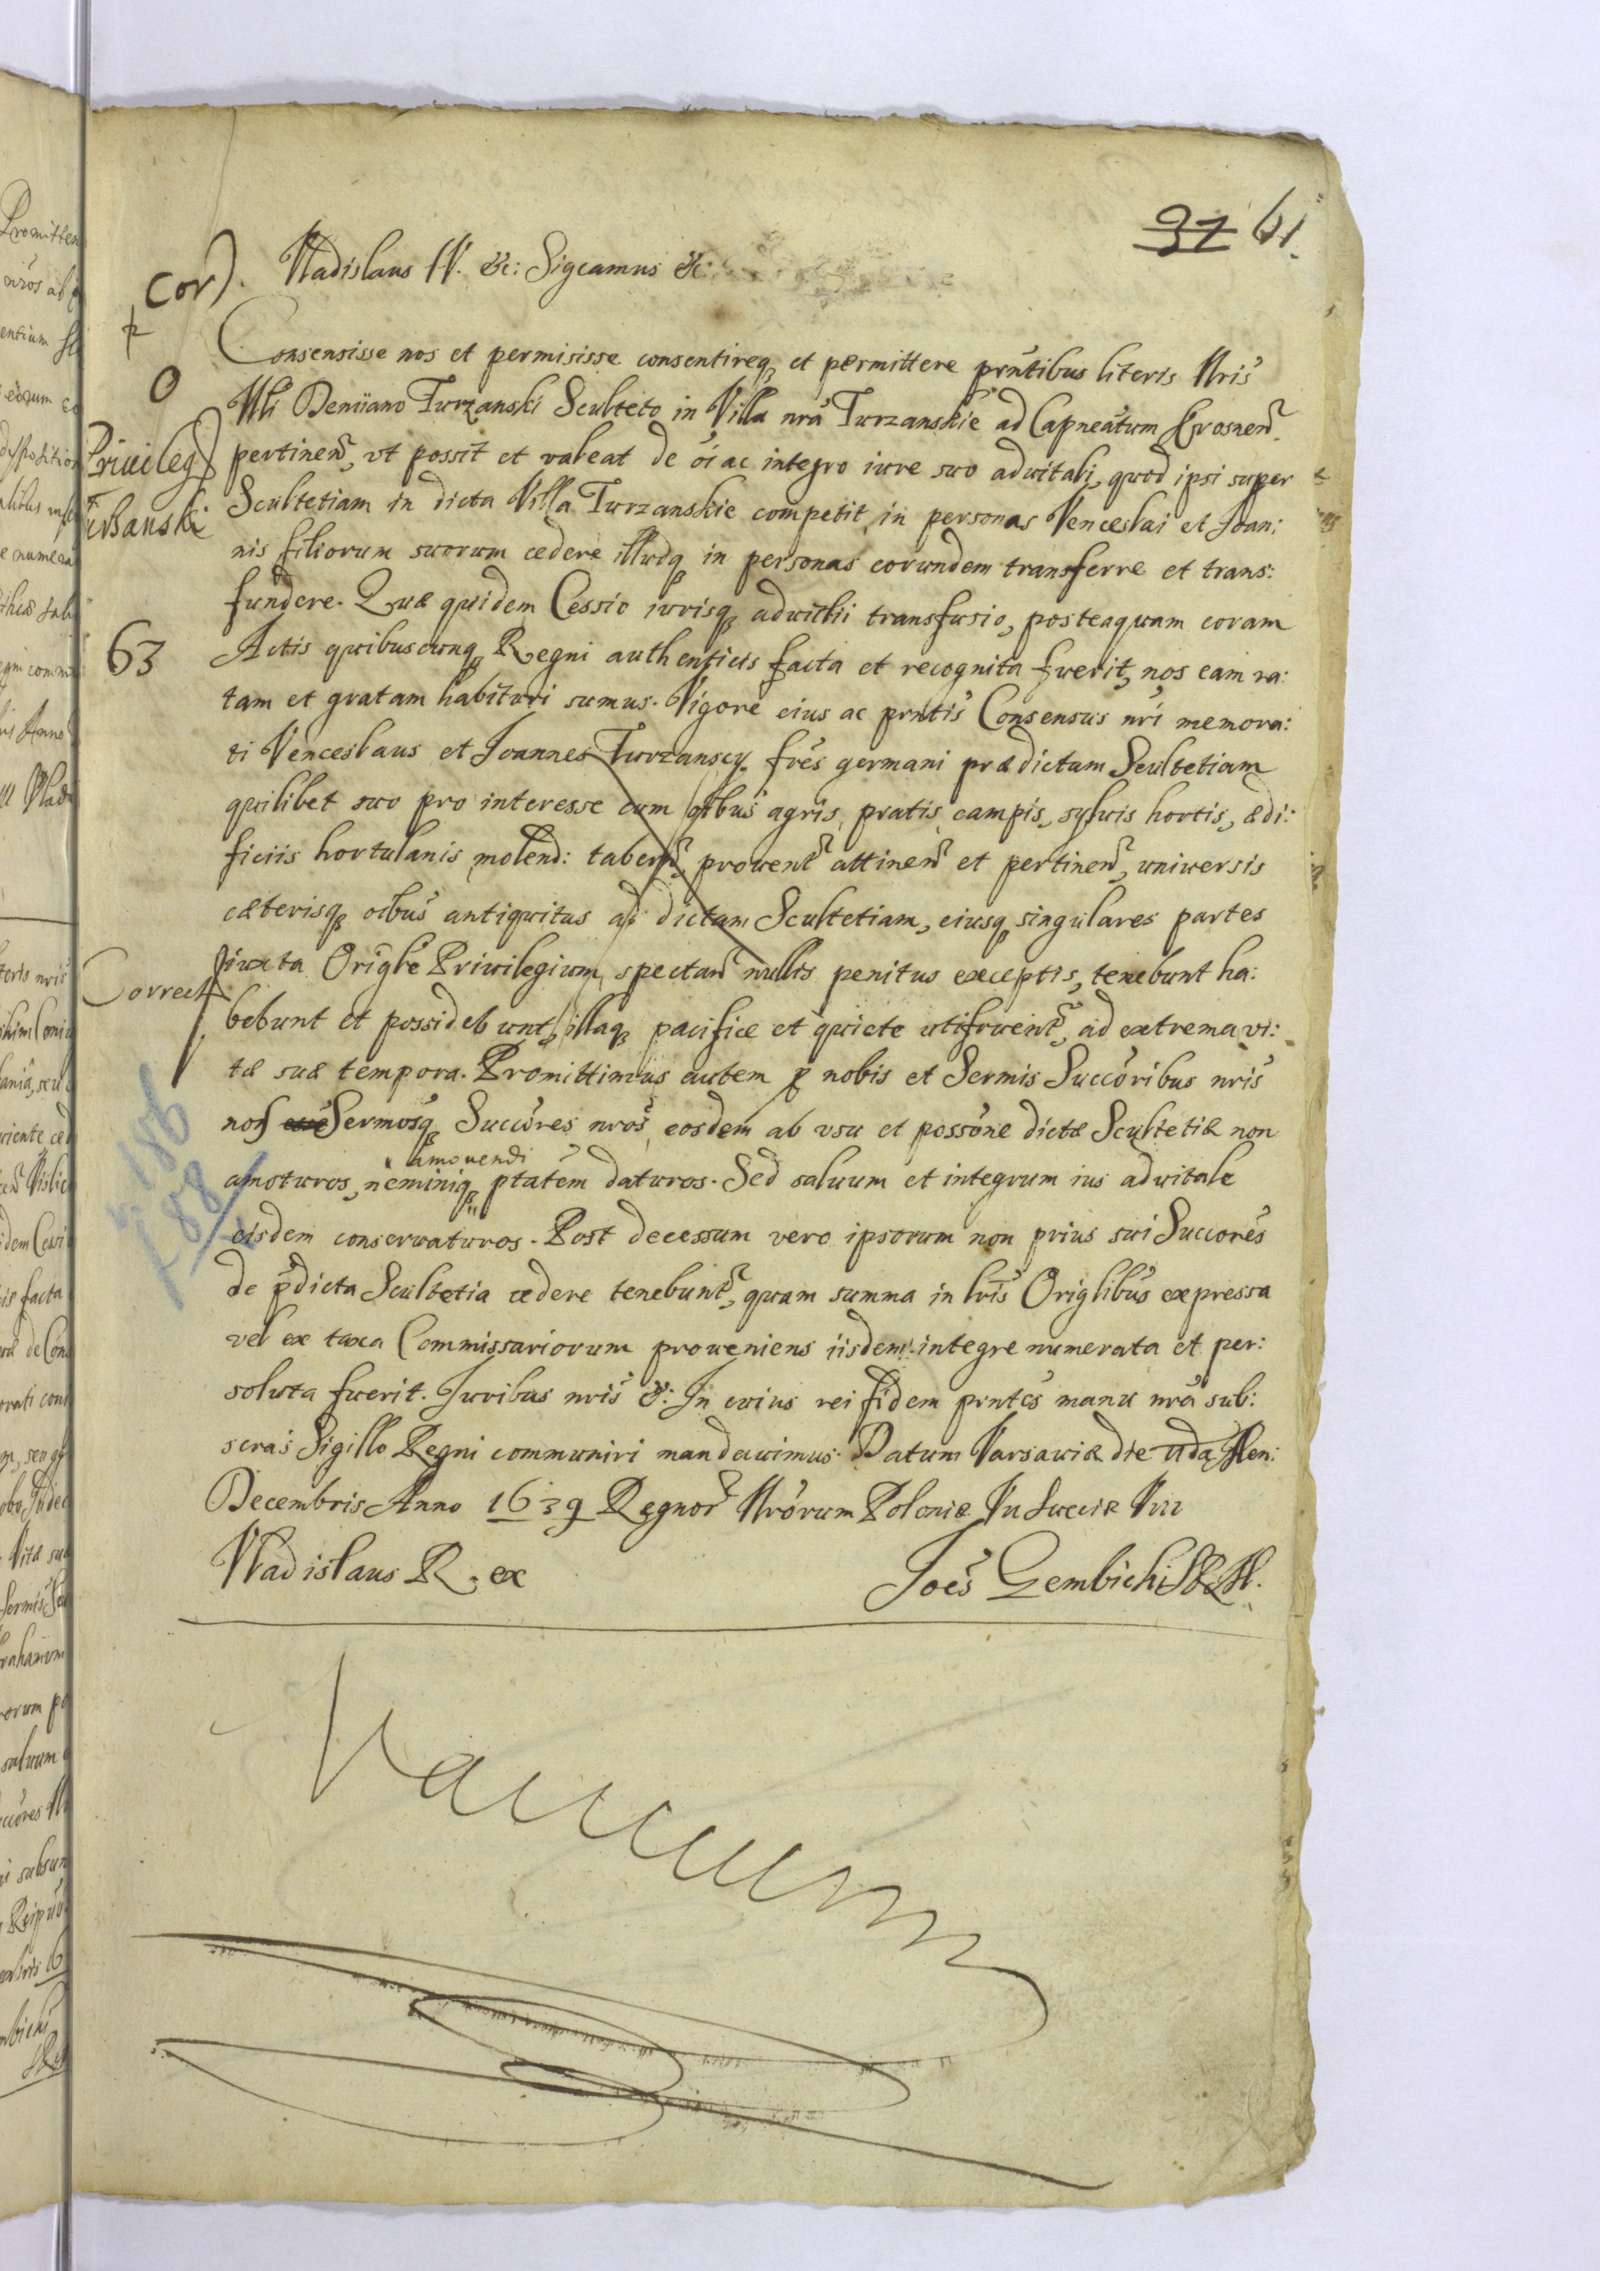 37 61.
Cor). Vladislaus IV. &c: Sigcamus &c:
Consensisse nos et permisisse consentireq et permittere prntibus literis Nris
Nli Demiano Turzanski Sculteto in Villa nra Turzanskie ad Capneatum Crosnen
pertinen, vt possit et valeat de oi ac integro iure suo aduitali, quod ipsi super
Scultetiam in dicta Villa Turzanskie competit, in personas Venceslai et Joan:
nis filiorum suorum cedere illudq in personas eorundem transferre et trans:
fundere. Quæ quidem Cessio iurisq aduitlii transfusio, posteaquam coram
Actis quibuscunq Regni authenticis facta et recognita fuerit, nos eam ra:
tam et gratam habituri sumus. Vigore eius ac prntis Consensus nri memora:
ti Venceslaus et Joannes Turzanscy fres germani prædictam Scultetiam
quilibet suo pro interesse cum oibus agris, pratis, campis, syluis hortis, ædi:
ficiis hortulanis, molend: tabern, prouent attinen et pertinen, uniuersis
cæterisq oibus antiquitus ad dictam Scultetiam, eiusq singulares partes
iuxta Origle Priuilegium, spectan nullis penitus exceptis, tenebunt ha:
bebunt et possidebunt, illaq pacifice et quiete utifruent, ad extrema vi:
tæ suæ tempora. Promittimus autem p nobis et Sermis Succoribus nris
nos Sermosq Succores nros, eosdem ab vsu et possone dictæ Scultetiæ non
amouendi
amoturos, neminiq ptatem daturos. Sed saluum et integrum ius aduitale
eisdem conseruaturos. Post decessum vero ipsorum non prius sui Succores
de pdicta Scultetia cedere tenebunt, quam summa in lris Origlibus expressa
vel ex taxa Commissariorum proueniens iisdem integre numerata et per:
soluta fuerit. Iuribus nris &: In cuius rei fidem prntes manu nra sub:
scras Sigillo Regni communiri mandauimus. Datum Varsauiæ die uda Men:
Decembris Anno 1639 Regnor Nrorum Poloniæ VII Sueciæ VIII
Vladislaus R.ex Joes Gembicki
Vacuum
O
Priuileg
Turzanski
63
Correct
186
f 88